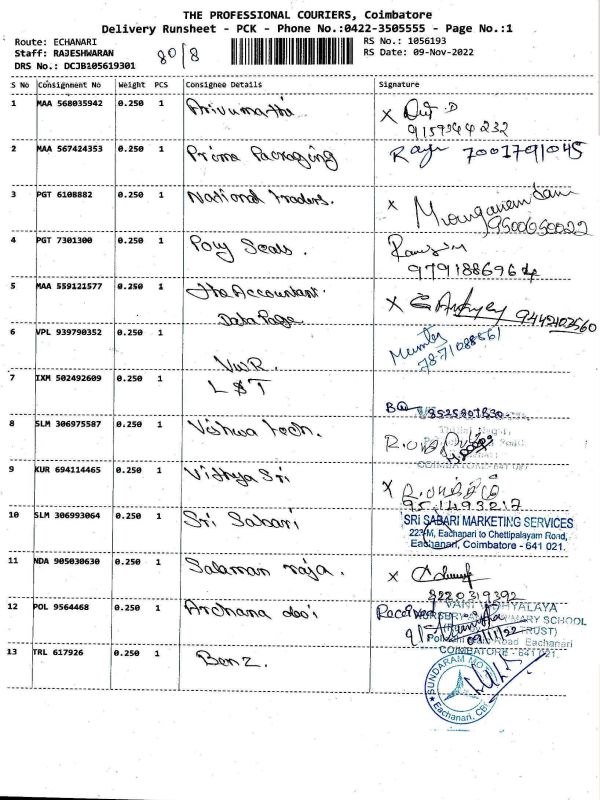 THE PROFESSIONAL COURIERS, Coimbatore
Delivery Runsheet - PCK - Phone No.:0422-3505555 - Page No.:1
Route: ECHANARI
Staff: RAJESHWARAN
DRS No.: DCJB105619301
80/8
RS No.: 1056193
RS Date: 09-Nov-2022
S No Consignment No Weight PCS Consignee Details Signature
1 MAA 568035942 0.250 1 Arivumathi
2 MAA 567424353 0.250 1 Prima Packaging 7001791045
3 PGT 6108882 0.250 1 National Traders. 9500650022
4 PGT 7301300 0.250 1 Poly Seals. 9791886964
5 MAA 559121577 0.250 1 The Accountant. 9442103560
Data Page
6 VPL 939790352 0.250 1 VWR. 7871088561
7 IXM 502492609 0.250 1 L&T
8 SLM 306975587 0.250 1 Vishwa tech.
9 KUR 694114465 0.250 1 Vidhya Sri 9514493217
10 SLM 306993064 0.250 1 Sri Sabari
SRI SABARI MARKETING SERVICES
223-M, Eachapari to Chettipalayam Road,
Eachanari, Coimbatore - 641 021.
11 NDA 905030630 0.250 1 Salaman raja. 8220319392
12 POL 9564468 0.250 1 Archana devi Received
PRIMARY SCHOOL
TRUST)
Road Eachanari
COIMBATORE - 641 021.
09/11/22
13 TRL 617926 0.250 1 Benz.
SUNDARAM MOTORS
Eachanari, CBE